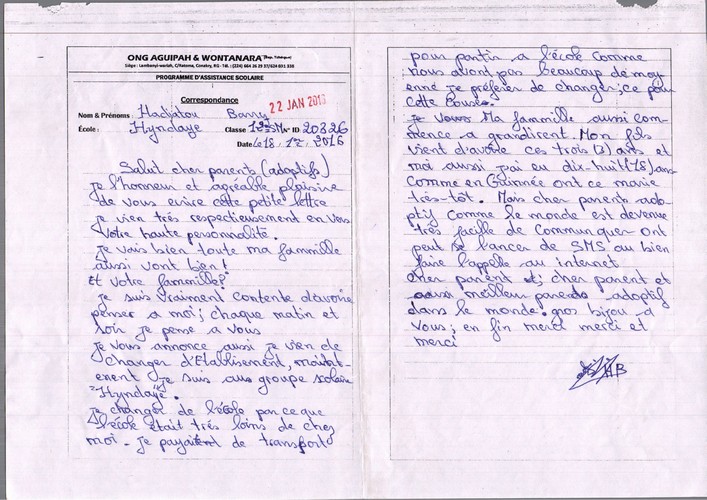 ONG AGUIPAH & WONTANARA (Rép. Tchèque)
Siège : Lambanyi-wariah, C/Ratoma, Conakry, RG - Tél. : (224) 664 26 29 37/624 093 358
PROGRAMME D'ASSISTANCE SCOLAIRE
Correspondance
22 JAN 2016
Nom & Prénoms Hadjatou Barry
École : Hyndaye Classe 12è SM N° ID 20326
Date Le 18 / 12 / 2016
Salut cher parents (adoptifs)
je l'honneur et agréable plaisire
de vous evire cette petite lettre
je vien très respectieusement en vous
votre haute personnalité.
je vais bien toute ma fammille
aussi vont bien!
Et votre fammille?
je suis vraiment contente d'avoire
penser a moi; chaque matin et
soir je pense a vous
je vous annonce aussi je vien de
changer d'Etablisement, maint-
enent je suis au groupe scolaire
"Hyndaye".
je changer de l'école parceque
l'école était très loins de chez
moi. je payaient de transport
pour partir a l'école comme
nous avont pas beaucoup de moy
enne je préferer de changer; ce pour
cette cause.
je vous Ma fammille aussi com-
mence a grandirent. Mon fils
vient d'avoire ces trois (3) ans et
moi aussi j'ai eu dix-huit (18) ans
comme en Guinnée ont ce marie
très-tôt. Mais cher parents ado-
ptif comme le monde est devenue
très facille de communquer ont
peut se l'ancer de SMS ou bien
faire l'appelle au internet
cher parent et; cher parent et
aussi meilleur parents adoptif
dans le monde. gros bisou a
vous; en fin merci merci et
merci